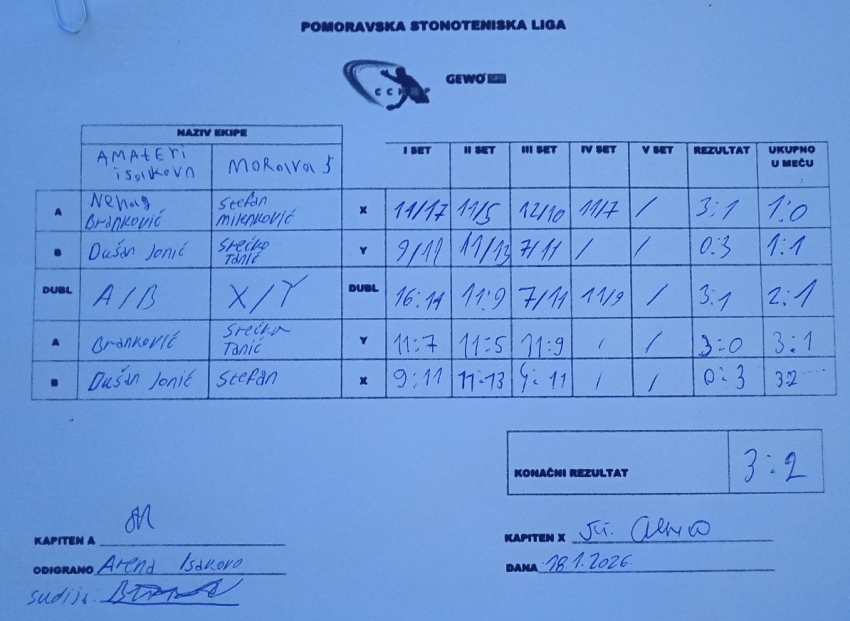 POMORAVSKA STONOTENISKA LIGA
CCKMP
GEWO
NAZIV EKIPE
AMATERI Isakovo MORAVA 5 I SET II SET III SET IV SET V SET REZULTAT UKUPNO U MEČU
A Nenad Branković Stefan Milenković X 11/17 11/5 12/10 11/7 / 3:1 1:0
B Dušan Jonić Srećko Tanić Y 9/11 11/13 7/11 / / 0:3 1:1
DUBL A/B X/Y DUBL 16:14 11:9 7/11 11/9 / 3:1 2:1
A Branković Srećko Tanić Y 11:7 11:5 11:9 / / 3:0 3:1
B Dušan Jonić Stefan X 9:11 11:13 9:11 / / 0:3 32
KONAČNI REZULTAT 3:2
KAPITEN A
KAPITEN X
ODIGRANO Arena Isakovo
DANA 18.1.2026.
sudija: